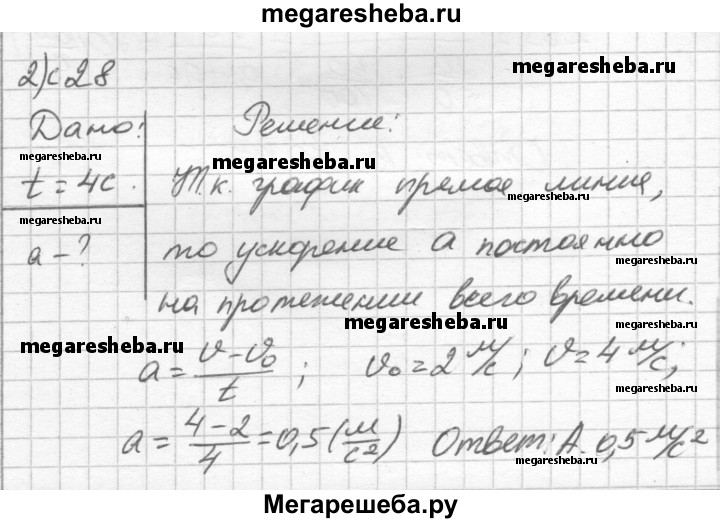 megaresheba.ru
2) с 28
megaresheba.ru
Дано: Решение:
megaresheba.ru megaresheba.ru
t = 4с. Т.к. график прямая линия,
megaresheba.ru megaresheba.ru
a – ? то ускорение a постоянно
megaresheba.ru
на протяжении всего времени.
megaresheba.ru megaresheba.ru
megaresheba.ru
a = (v – v₀)/t ; v₀ = 2 м/с ; v = 4 м/с;
megaresheba.ru
a = (4 – 2)/4 = 0,5 (м/с²) Ответ: А. 0,5 м/с²
megaresheba.ru
Мегарешеба.ру